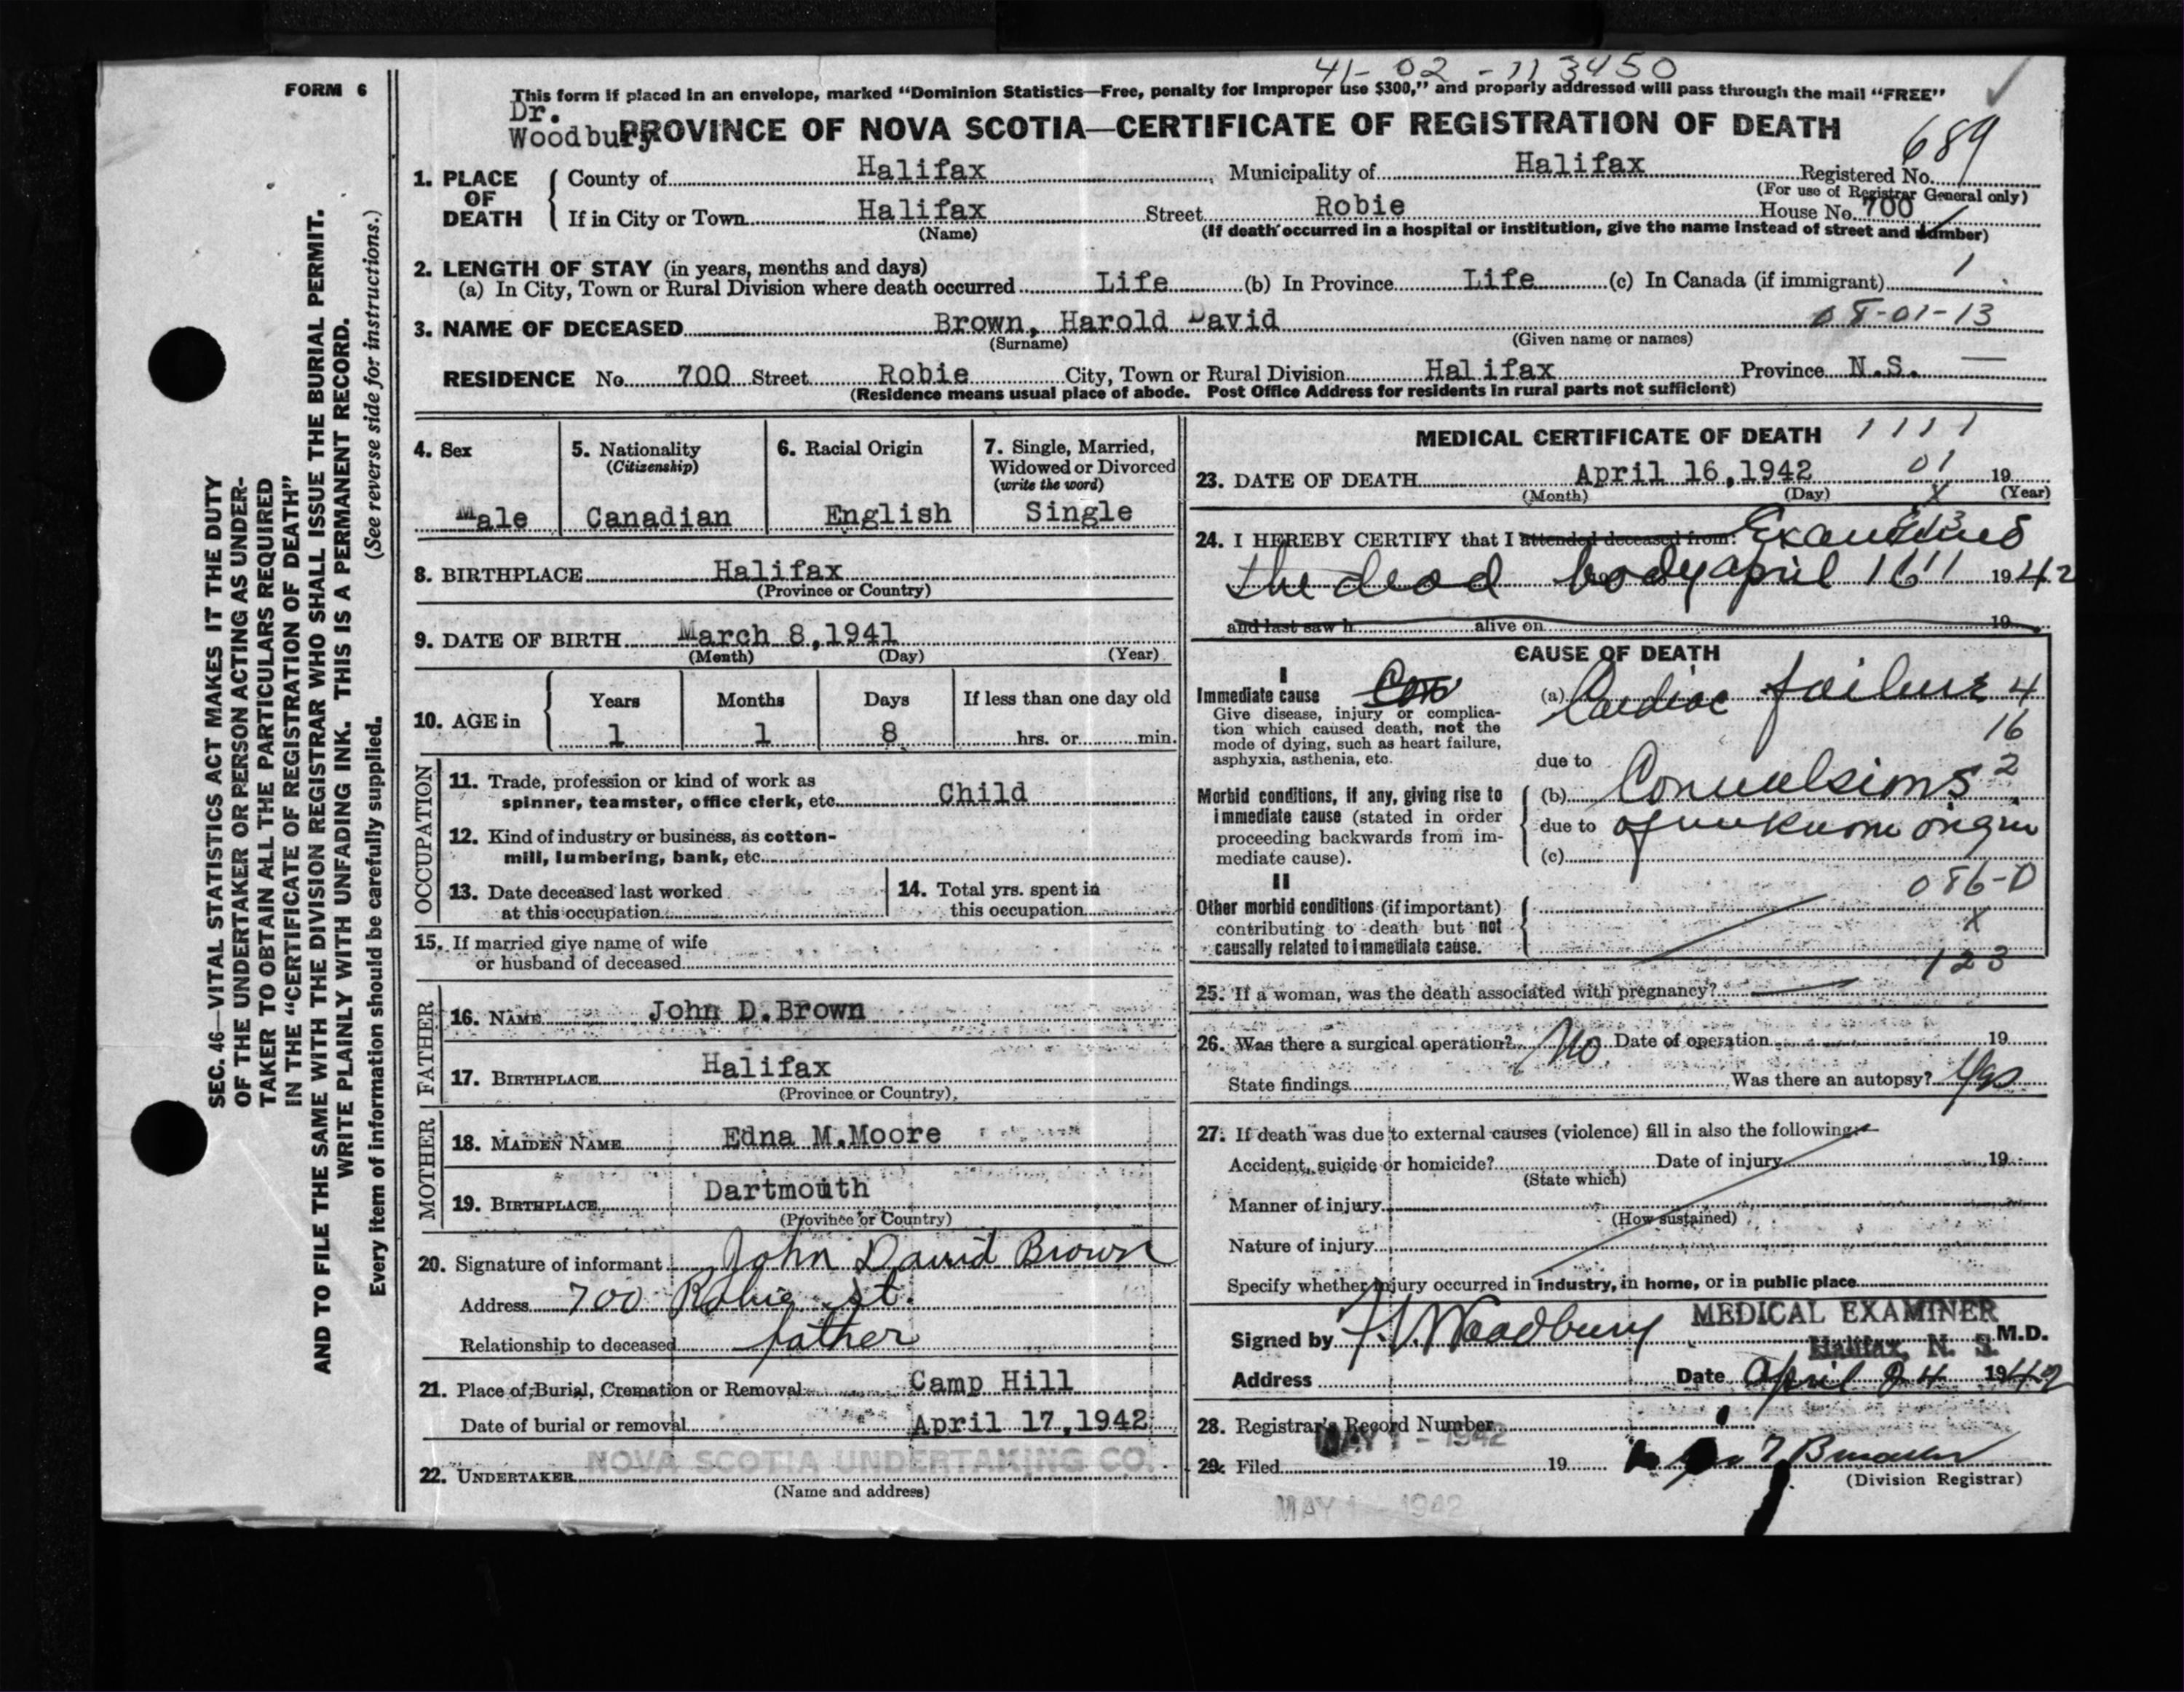 41-02-113450
FORM 6
This form if placed in an envelope, marked “Dominion Statistics—Free, penalty for improper use $300,” and properly addressed will pass through the mail “FREE”
Dr.
Woodbury
PROVINCE OF NOVA SCOTIA—CERTIFICATE OF REGISTRATION OF DEATH
689
1. PLACE OF DEATH
County of Halifax, Municipality of Halifax Registered No.
(For use of Registrar General only)
If in City or Town Halifax Street Robie House No. 700
(Name) (If death occurred in a hospital or institution, give the name instead of street and number)
2. LENGTH OF STAY (in years, months and days)
(a) In City, Town or Rural Division where death occurred Life (b) In Province Life (c) In Canada (if immigrant) 1
3. NAME OF DECEASED Brown, Harold David 08-01-13
(Surname) (Given name or names)
RESIDENCE No. 700 Street Robie City, Town or Rural Division Halifax Province N.S. —
(Residence means usual place of abode. Post Office Address for residents in rural parts not sufficient)
4. Sex
Male
5. Nationality
(Citizenship)
Canadian
6. Racial Origin
English
7. Single, Married,
Widowed or Divorced
(write the word)
Single
8. BIRTHPLACE Halifax
(Province or Country)
9. DATE OF BIRTH March 8, 1941
(Month) (Day) (Year)
10. AGE in
Years Months Days If less than one day old
1 1 8 hrs. or min.
OCCUPATION
11. Trade, profession or kind of work as
spinner, teamster, office clerk, etc. Child
12. Kind of industry or business, as cotton-
mill, lumbering, bank, etc.
13. Date deceased last worked
at this occupation
14. Total yrs. spent in
this occupation
15. If married give name of wife
or husband of deceased
FATHER
16. NAME John D. Brown
17. BIRTHPLACE Halifax
(Province or Country)
MOTHER
18. MAIDEN NAME Edna M. Moore
19. BIRTHPLACE Dartmouth
(Province or Country)
20. Signature of informant John David Brown
Address 700 Robie St.
Relationship to deceased father
21. Place of Burial, Cremation or Removal Camp Hill
Date of burial or removal April 17, 1942
22. UNDERTAKER NOVA SCOTIA UNDERTAKING CO.
(Name and address)
MEDICAL CERTIFICATE OF DEATH 1111
01
23. DATE OF DEATH April 16, 1942 19
(Month) (Day) (Year)
X
24. I HEREBY CERTIFY that I attended deceased from: Examined
the dead body april 16 1942
and last saw h alive on 19
CAUSE OF DEATH
I
Immediate cause Con (a) Cardiac failure 4
Give disease, injury or complica-
tion which caused death, not the
mode of dying, such as heart failure,
asphyxia, asthenia, etc.
16
due to
2
Morbid conditions, if any, giving rise to
immediate cause (stated in order
proceeding backwards from im-
mediate cause).
(b) Convulsions
due to of unknown origin
(c)
086-D
II
Other morbid conditions (if important)
contributing to death but not
causally related to immediate cause.
X
123
25. If a woman, was the death associated with pregnancy? —
26. Was there a surgical operation? No. Date of operation 19
State findings Was there an autopsy? Yes
27. If death was due to external causes (violence) fill in also the following:—
Accident, suicide or homicide? Date of injury 19
(State which)
Manner of injury
(How sustained)
Nature of injury
Specify whether injury occurred in industry, in home, or in public place
MEDICAL EXAMINER
Signed by Woodbury Halifax, N. S. M.D.
Address Date April 24 1942
28. Registrar's Record Number
MAY 1 - 1942
29. Filed 19
(Division Registrar)
MAY 1 - 1942
SEC. 46—VITAL STATISTICS ACT MAKES IT THE DUTY
OF THE UNDERTAKER OR PERSON ACTING AS UNDER-
TAKER TO OBTAIN ALL THE PARTICULARS REQUIRED
IN THE “CERTIFICATE OF REGISTRATION OF DEATH”
AND TO FILE THE SAME WITH THE DIVISION REGISTRAR WHO SHALL ISSUE THE BURIAL PERMIT.
WRITE PLAINLY WITH UNFADING INK. THIS IS A PERMANENT RECORD.
Every item of information should be carefully supplied. (See reverse side for instructions.)